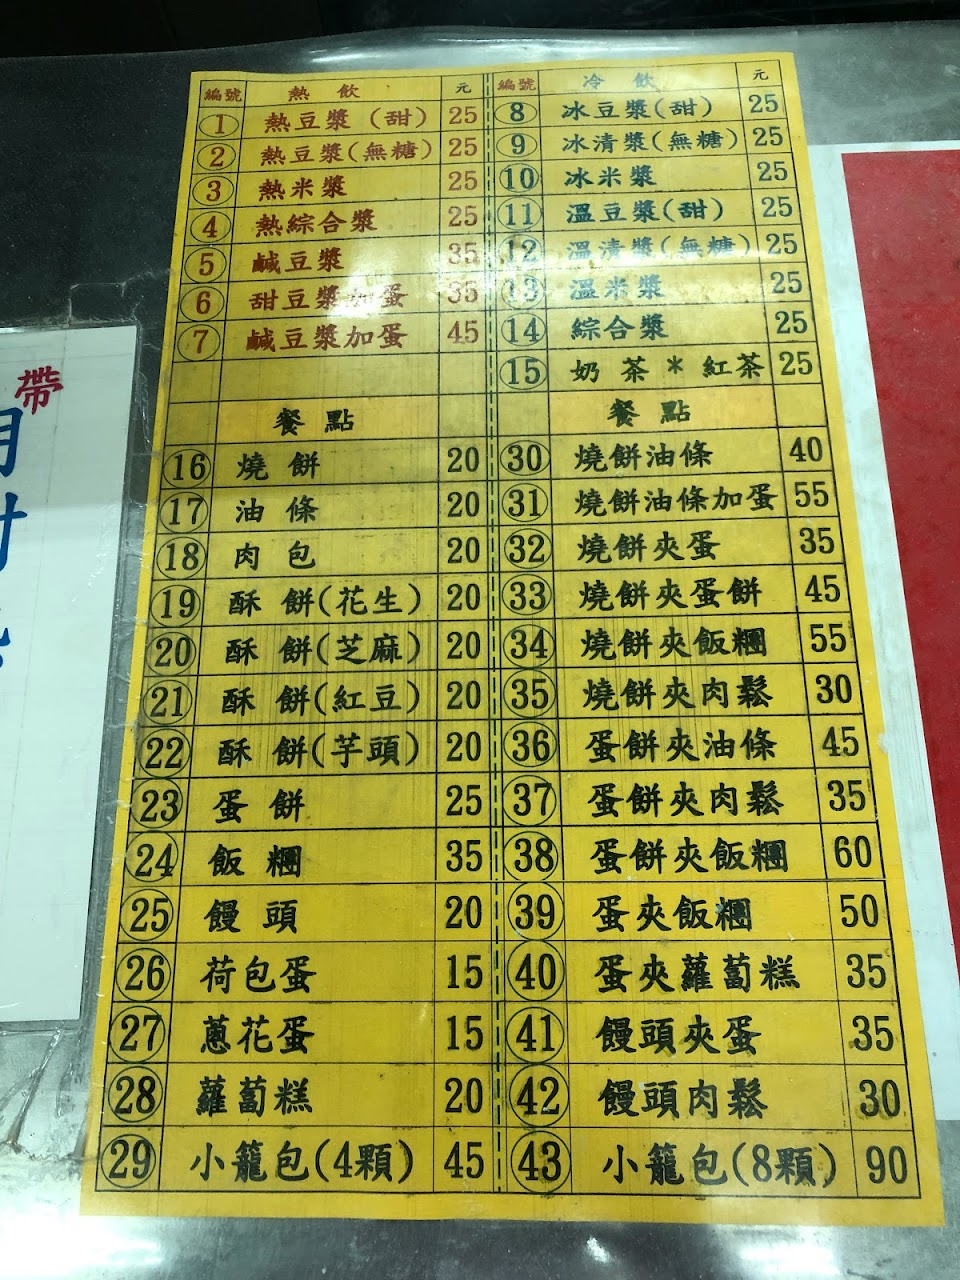 編號 熱飲 元 編號 冷飲 元
1 熱豆漿(甜) 25 8 冰豆漿(甜) 25
2 熱豆漿(無糖) 25 9 冰清漿(無糖) 25
3 熱米漿 25 10 冰米漿 25
4 熱綜合漿 25 11 溫豆漿(甜) 25
5 鹹豆漿 35 12 溫清漿(無糖) 25
6 甜豆漿加蛋 35 13 溫米漿 25
7 鹹豆漿加蛋 45 14 綜合漿 25
15 奶茶*紅茶 25
餐點 餐點
16 燒餅 20 30 燒餅油條 40
17 油條 20 31 燒餅油條加蛋 55
18 肉包 20 32 燒餅夾蛋 35
19 酥餅(花生) 20 33 燒餅夾蛋餅 45
20 酥餅(芝麻) 20 34 燒餅夾飯糰 55
21 酥餅(紅豆) 20 35 燒餅夾肉鬆 30
22 酥餅(芋頭) 20 36 蛋餅夾油條 45
23 蛋餅 25 37 蛋餅夾肉鬆 35
24 飯糰 35 38 蛋餅夾飯糰 60
25 饅頭 20 39 蛋夾飯糰 50
26 荷包蛋 15 40 蛋夾蘿蔔糕 35
27 蔥花蛋 15 41 饅頭夾蛋 35
28 蘿蔔糕 20 42 饅頭肉鬆 30
29 小籠包(4顆) 45 43 小籠包(8顆) 90
帶